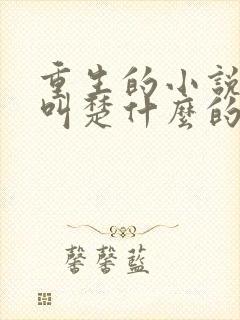 重生的小說
叫楚什麼的
馨馨藍